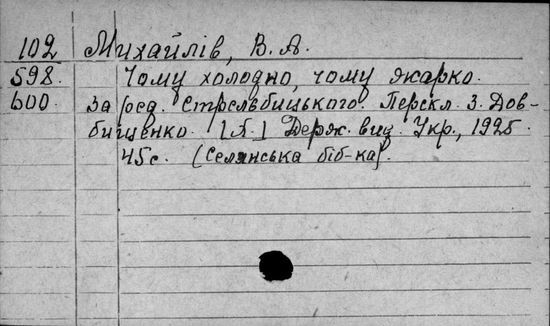 102 Михайлів, В. А.
598. Чому холодно, чому жарко.
600. За ред. Стрельбицького. Перекл. З. Дов-
бищенко. [Л.] Держ. вид. Укр., 1925.
45 с. (Селянська біб-ка).